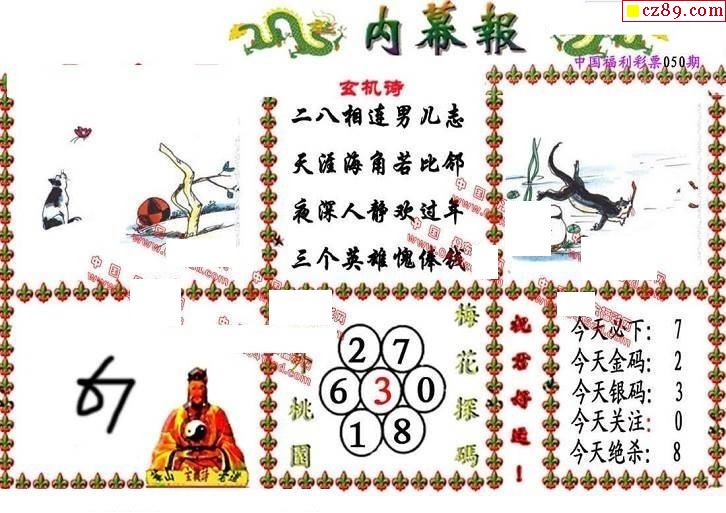 cz89.com
内幕報
中国福利彩票050期
玄机诗
二八相连男儿志
天涯海角若比邻
夜深人静欢过年
三个英雄愧俸钱
67
外桃園
2 7
6 3 0
1 8
梅花探碼
祝君好运!
今天必下: 7
今天金码: 2
今天银码: 3
今天关注: 0
今天绝杀: 8